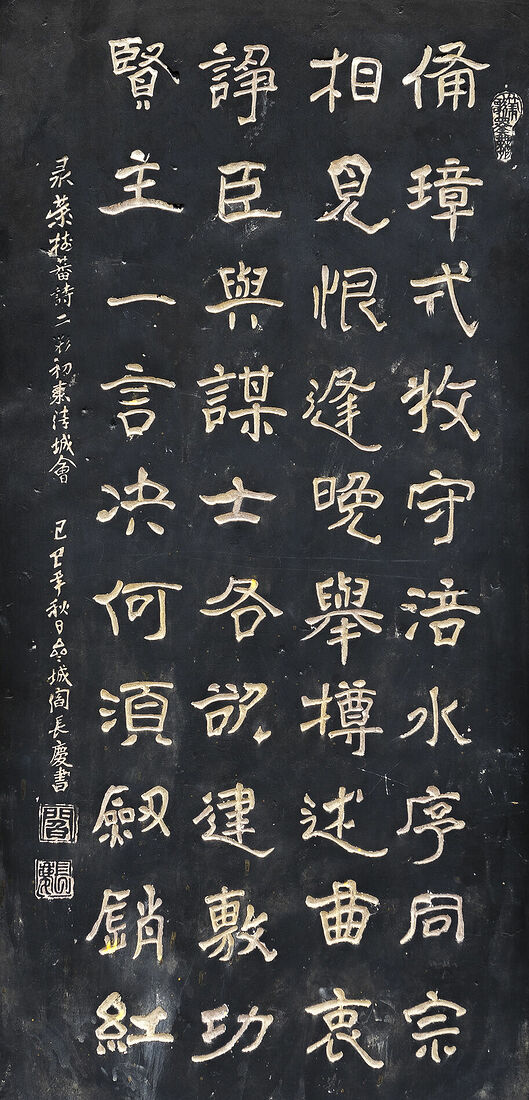 備璋弍牧守涪水序同宗
相見恨逢晚舉樽述曲衷
諍臣與謀士各欲建敷功
賢主一言決何須劔銷紅
录葉蕃詩二初涪城會 己巳年秋日城閻長慶書
閻
長慶